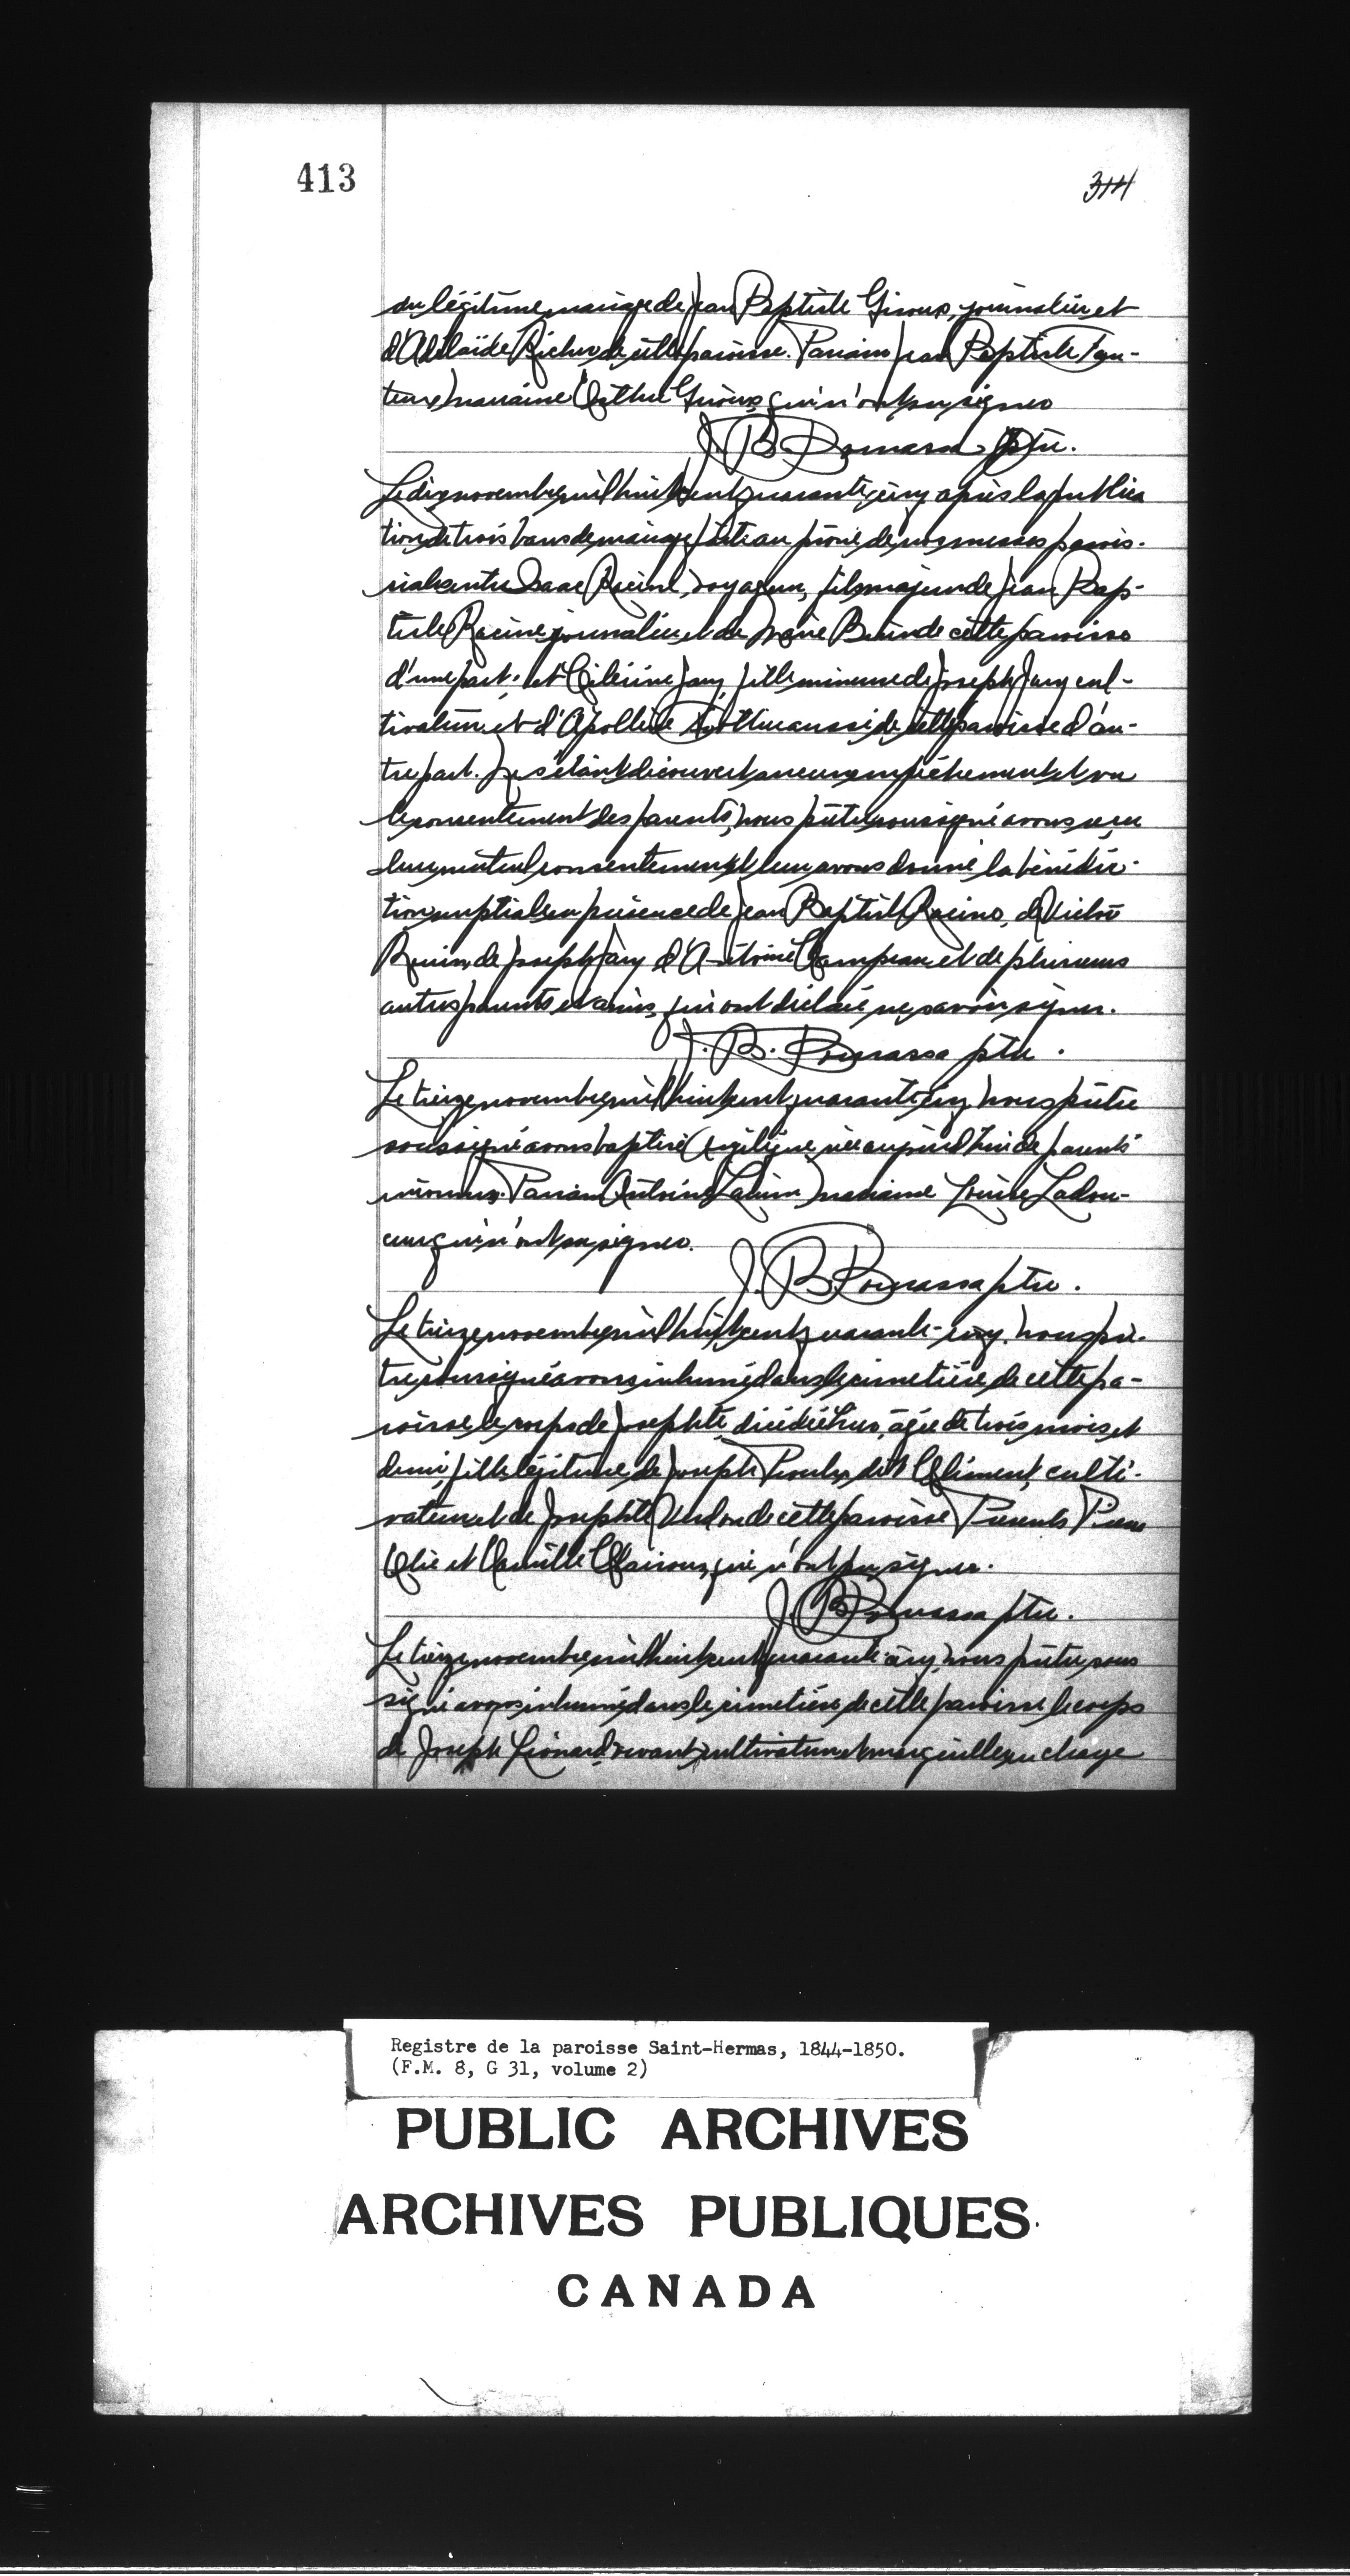 413
314
du légitime mariage de Jean Baptiste Giroux, journalier et
d'Adélaïde Richer de cette paroisse. Parrain Jean Baptiste
marraine Esther Giroux qui n'ont pu signer
J. B. Bourassa Ptre.
Le dix novembre mil huit cent quarante cinq après la publica
tion de trois bans de mariage faite au prône de nos messes parois-
siales entre Isaac Racine, voyageur, fils majeur de Jean Bap-
tiste Racine journalier et de Marie de cette paroisse
d'une part; et Jary, fille mineure de Joseph Jary cul-
tivateur et d'Apolline aussi de cette paroisse d'au-
tre part. Ne s'étant découvert aucun empêchement et vu
le consentement des parents, nous prêtre soussigné avons reçu
leur mutuel consentement et leur avons donné la bénédic-
tion nuptiale en présence de Jean Baptiste Racine, de Victor
de Joseph Jary d'Antoine Campeau et de plusieurs
autres parents et amis, qui ont déclaré ne savoir signer.
J. B. Bourassa ptre.
Le treize novembre mil huit cent quarante cinq nous prêtre
soussigné avons baptisé née aujourd'hui de parents
inconnus. Parrain Antoine marraine Louise Ladou-
ceur qui n'ont su signer.
J. B Bourassa ptre.
Le treize novembre mil huit cent quarante-cinq, nous prê-
tre soussigné avons inhumé dans le cimetière de cette pa-
roisse, le corps de Josephte, décédée hier, âgée de trois mois et
demi, fille légitime de Joseph Proulx dit Clément, culti-
vateur et de Josephte Verdon de cette paroisse Présents Pierre
et Camille Clairoux, qui n'ont pu signer.
J. B Bourassa ptre.
Le treize novembre mil huit cent quarante cinq, nous prêtre sous
signé avons inhumé dans le cimetière de cette paroisse le corps
de Joseph Léonard vivant cultivateur et marguillier en charge
Registre de la paroisse Saint-Hermas, 1844-1850.
(F.M. 8, G 31, volume 2)
PUBLIC ARCHIVES
ARCHIVES PUBLIQUES
CANADA